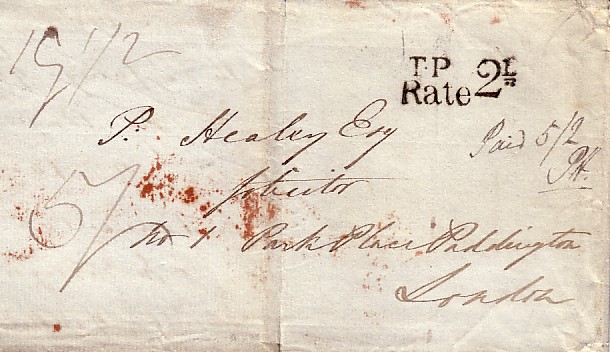 T.P
Rate 2d
P. Healey Esq
Solicitor
No 1 Park Place Paddington
London
Paid 5/2
PH.